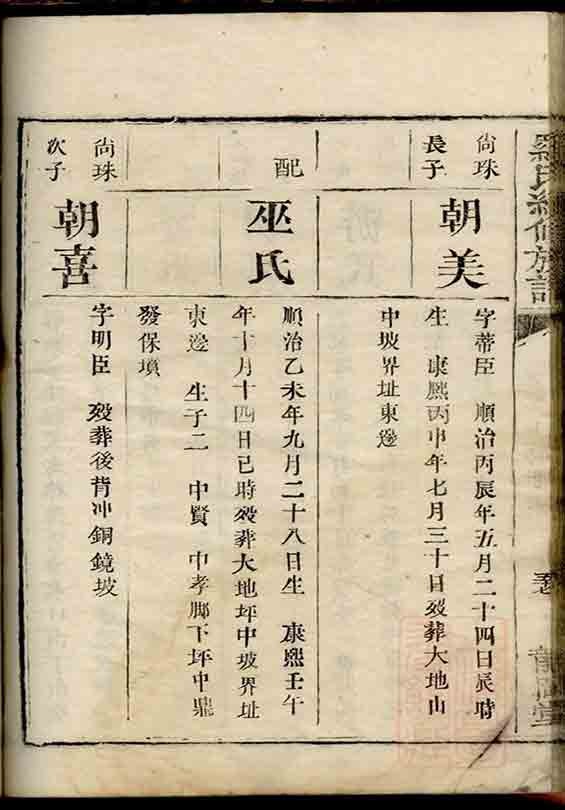 羅氏續修族譜
尚珠
長子
朝美
字蒂臣 順治丙辰年五月二十四日辰時
生 康熙丙申年七月三十日歿葬大地山
中坡界址東邊
配
巫氏
順治乙未年九月二十八日生 康熙壬午
年十月十四日巳時歿葬大地坪中坡界址
東邊 生子二 中賢 中孝 下坪中
發保墳
尚珠
次子
朝喜
字明臣 歿葬後背冲銅鏡坡